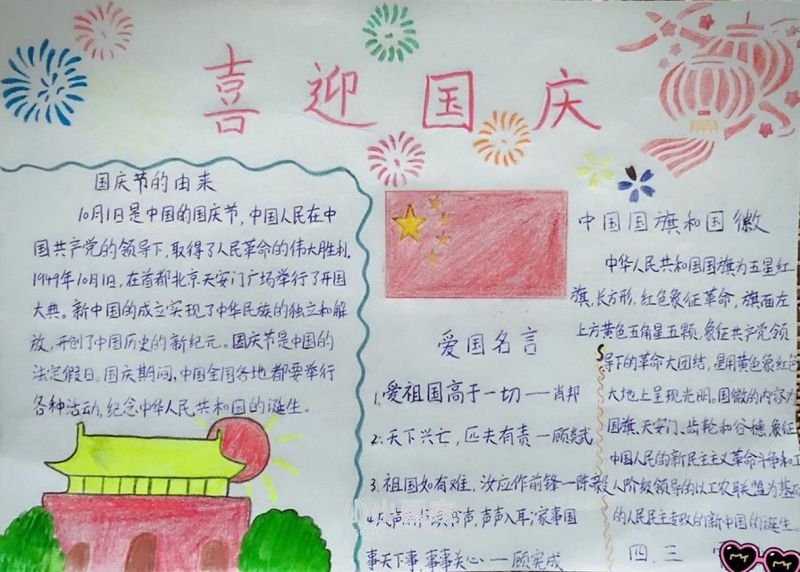 喜迎国庆
国庆节的由来
10月1日是中国的国庆节,中国人民在中
国共产党的领导下,取得了人民革命的伟大胜利.
1949年10月1日,在首都北京天安门广场举行了开国
大典。新中国的成立实现了中华民族的独立和解
放,开创了中国历史的新纪元。国庆节是中国的
法定假日。国庆期间,中国全国各地都要举行
各种活动,纪念中华人民共和国的诞生。
爱国名言
1.爱祖国高于一切——肖邦
2.天下兴亡,匹夫有责—顾炎武
3.祖国如有难,汝应作前锋—陈毅
声,声声入耳;家事国
事天下事,事事关心.——顾宪成
中国国旗和国徽
中华人民共和国国旗为五星红
旗,长方形,红色象征革命,旗面左
上方黄色五角星五颗,象征共产党领
导下的革命大团结,星用黄色象红色
大地上呈现光明。国徽的内容为
国旗、天安门、齿轮和谷穗,象征
中国人民的新民主主义革命斗争和工
人阶级领导的以工农联盟为基础
的人民民主专政的新中国的诞生。
四.三